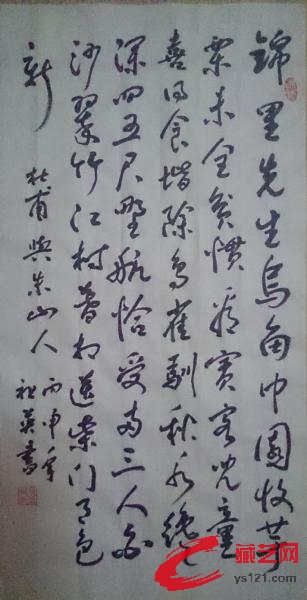 錦里先生烏角巾園收芋
栗未全貧慣看賓客児童
喜得食堦除鳥雀馴秋水纔
深四五尺野航恰受两三人白
沙翠竹江村暮相送柴門月色
新
杜甫與朱山人
丙申年
祖英書
藏艺网
ys121.com